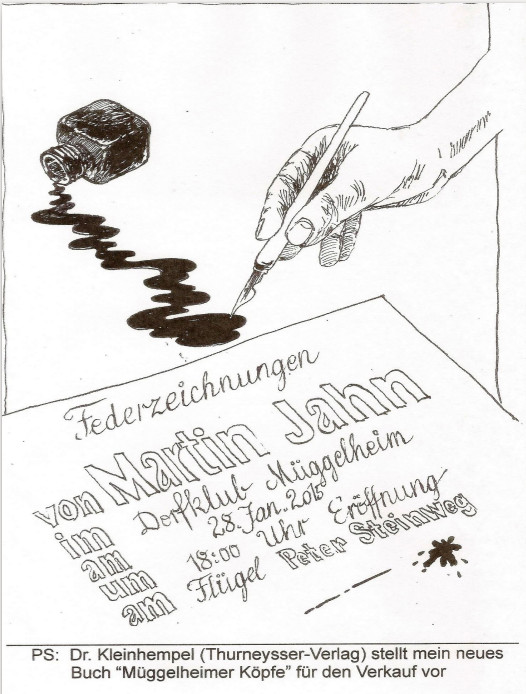 Federzeichnungen
von Martin Jahn
im Dorfklub Müggelheim
am 28. Jan. 2015
um 18:00 Uhr Eröffnung
am Flügel Peter Steinweg
PS: Dr. Kleinhempel (Thurneysser-Verlag) stellt mein neues
Buch “Müggelheimer Köpfe” für den Verkauf vor